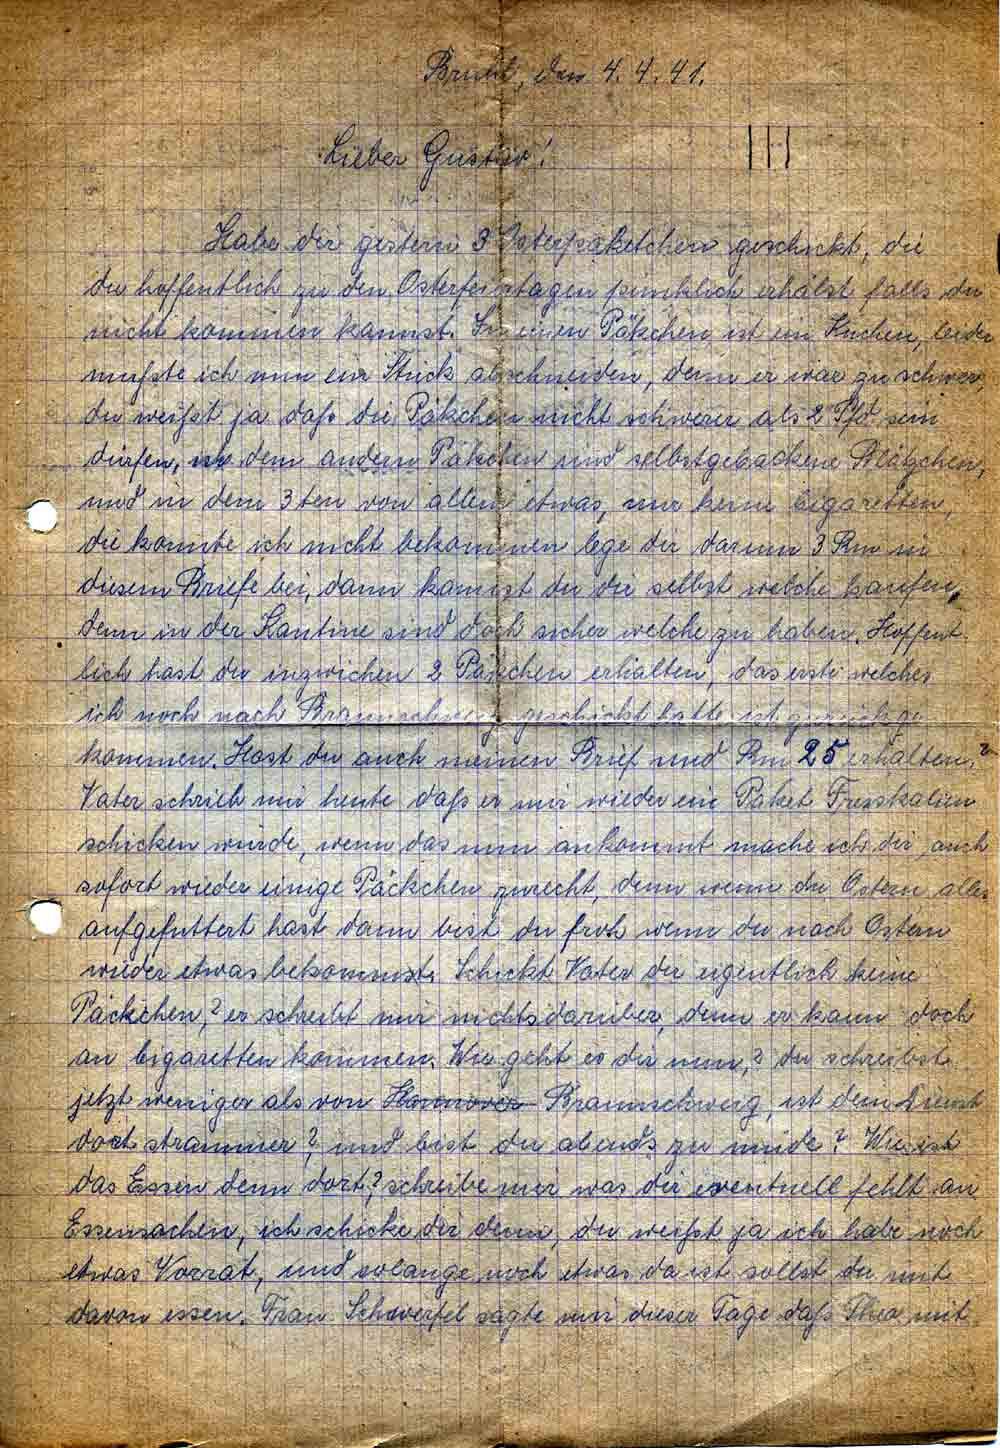 Brühl, den 4.4.41.
Lieber Gustav!
III
Habe dir gestern 3 Osterpaketchen geschickt, die
du hoffentlich zu den Osterfeiertagen pünklich erhälst falls du
nicht kommen kannst. In einen Päkchen ist ein Kuchen, leider
mußste ich nun ein Stück abschneiden, denn er war zu schwer,
du weißst ja daß die Päkchen nicht schwerer als 2 Pfd. sein
dürfen, in dem andern Päkchen sind selbstgebackene Plätzchen,
und in dem 3ten von allem etwas, nur keine Cigaretten,
die konnte ich nicht bekommen lege dir darum 3 Rm in
diesem Briefe bei, dann kannst du die selbst welche kaufen,
denn in der Kantine sind doch sicher welche zu haben. Hoffent
lich hast du inzwichen 2 Päckchen erhalten, das erste welches
ich noch nach Braunschweig geschickt hatte ist zurückge
kommen. Hast du auch meinen Brief und Rm 25 erhalten?
Vater schrieb mir heute daß er mir wieder ein Paket Fresskalien
schicken würde, wenn das nun ankommt mache ich dir auch
sofort wieder einige Päckchen zurecht, denn wenn du Ostern alles
aufgefuttert hast dann bist du froh wenn du nach Ostern
wieder etwas bekommst. Schickt Vater dir eigentlich keine
Päckchen,? er schreibt mir nichts darüber, denn er kann doch
an Cigaretten kommen. Wie geht es dir nun,? du schreibst
jetzt weniger als von Hannover Braunschweig, ist dem Dienst
dort strammer?, und bist du abends zu müde? Wie ist
das Essen denn dort,? schreibe mir was dir eventuell fehlt an
Essensachen, ich schicke dir denn, du weißst ja ich habe noch
etwas Vorrat, und solange noch etwas da ist sollst du mit
davon essen. Frau Schwerfel sagte mir dieser Tage daß Theo mit